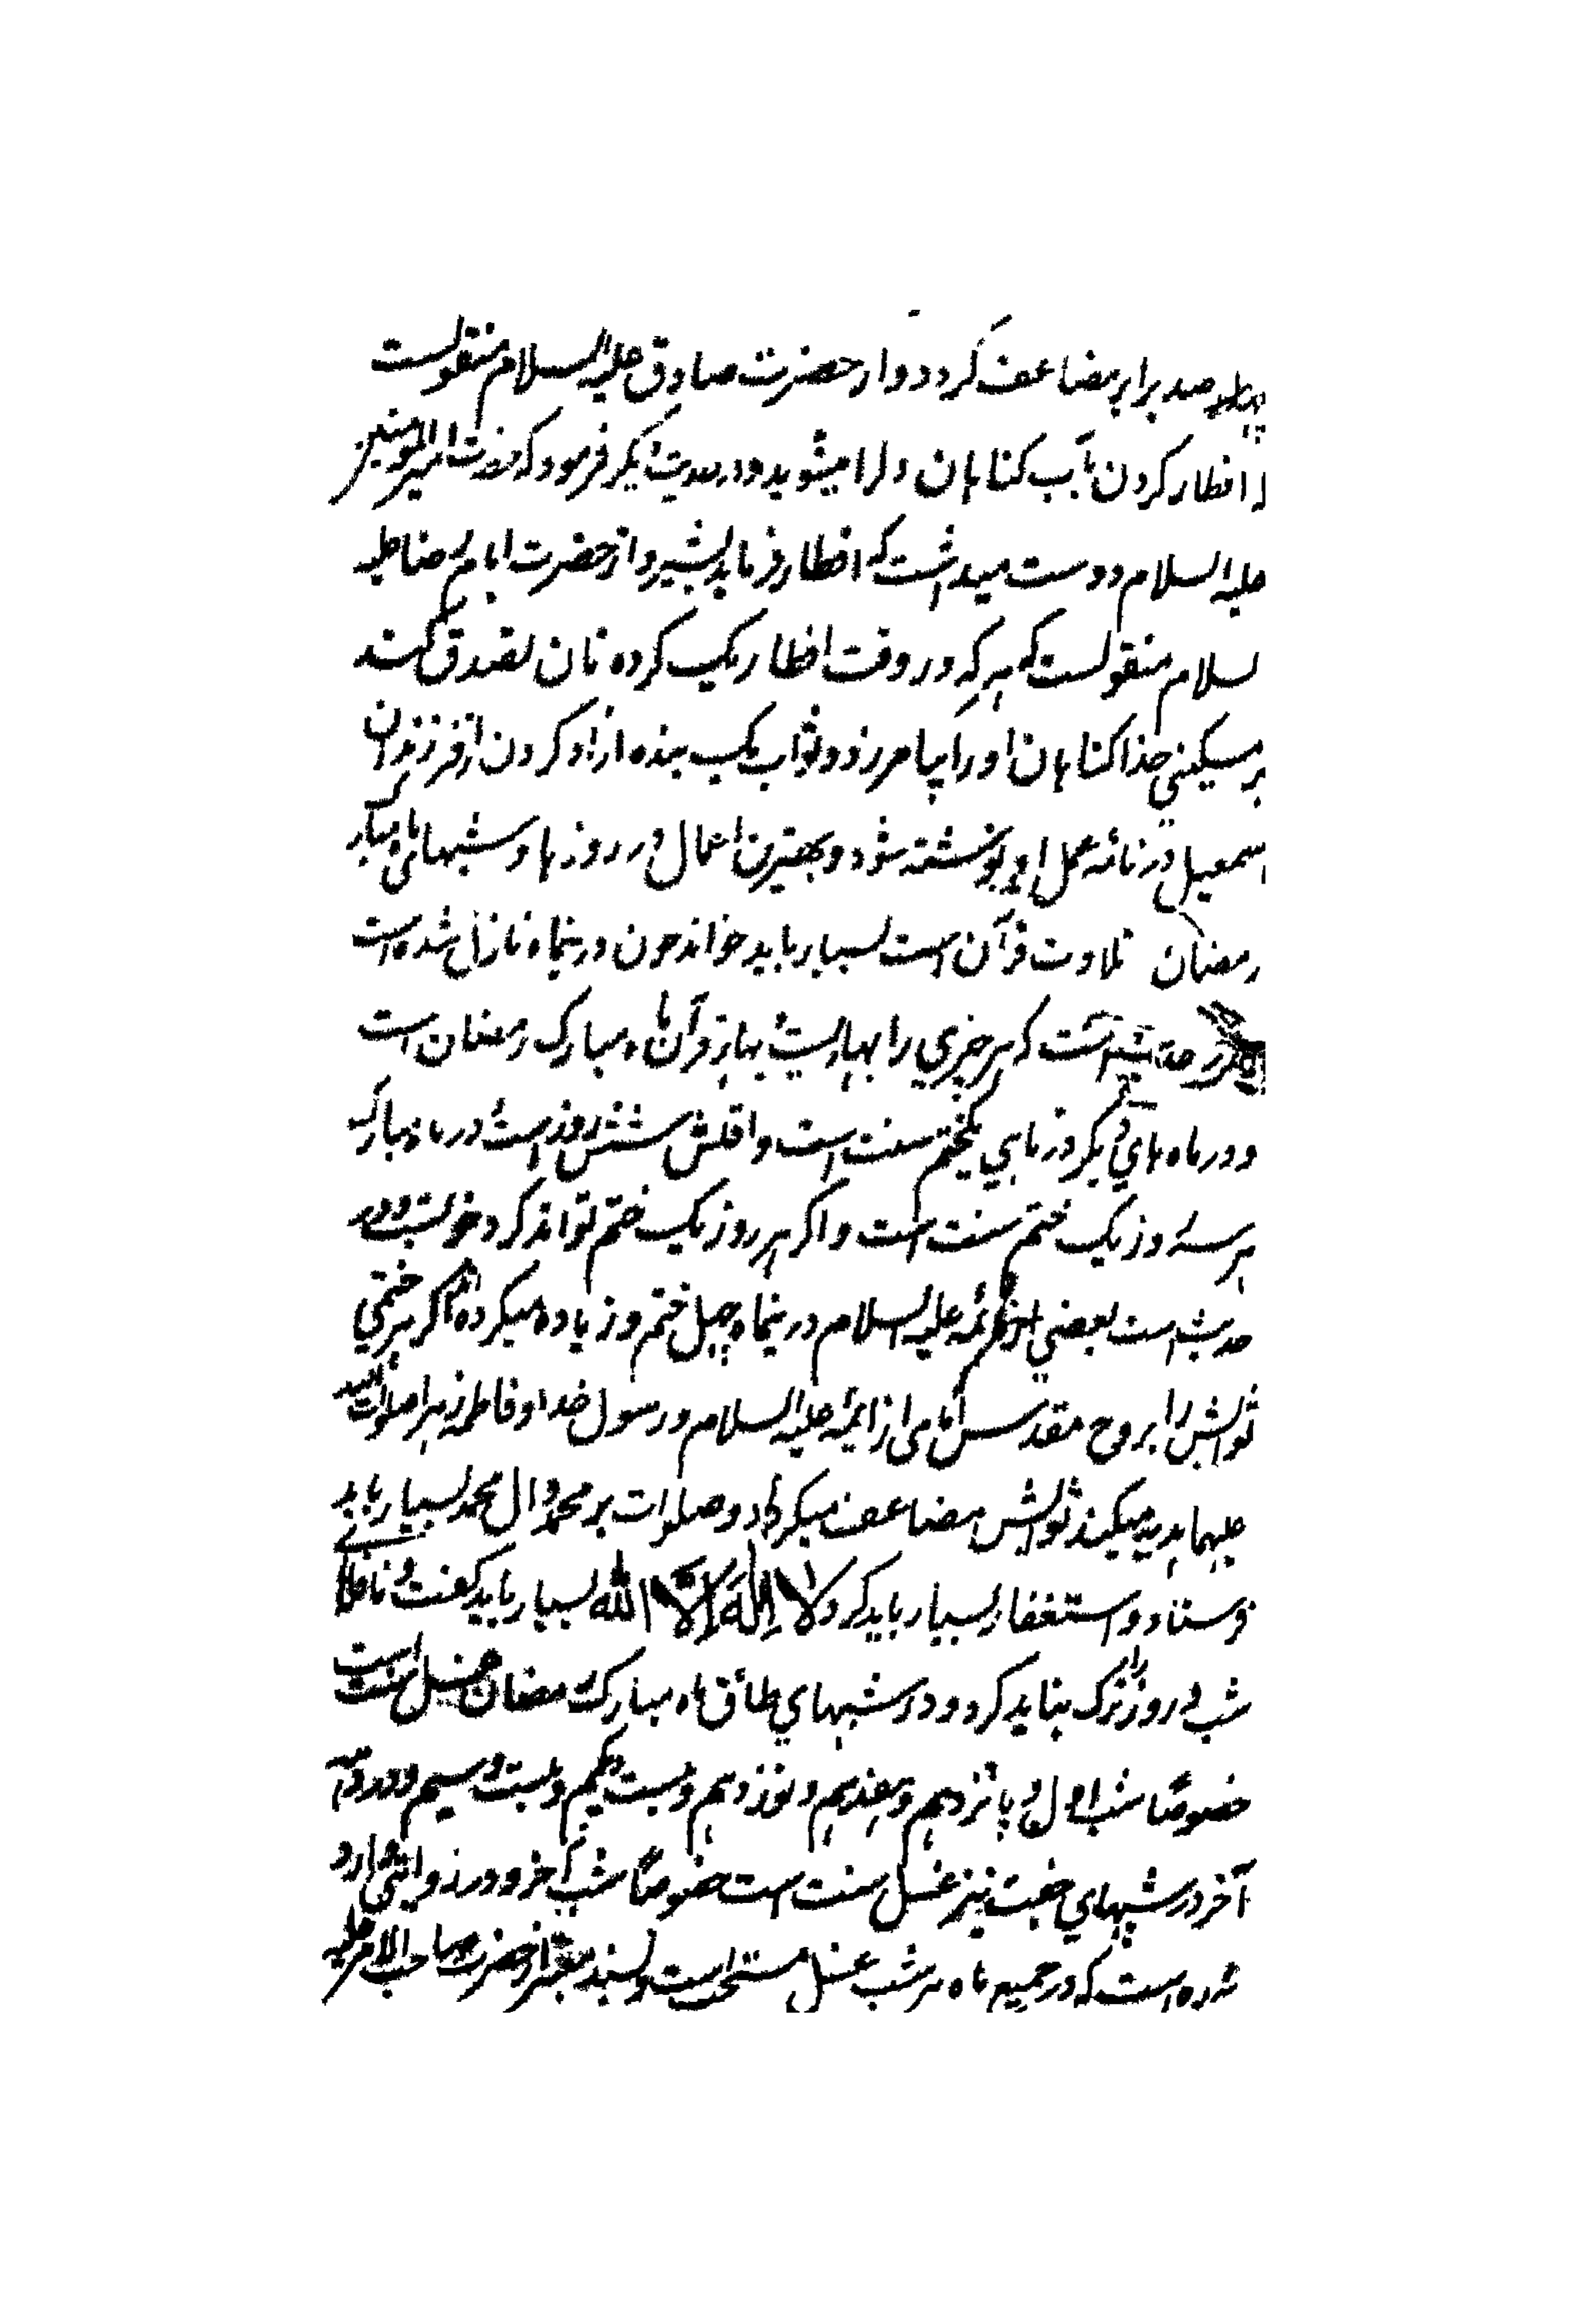 چهار صد برابر مضاعف گردد و از حضرت صادق علیه السلام منقولست
افطار کردن بآب کناهان دل را میشوید و در حدیث دیگر فرمود که حضرت امیر المومنین
علیه السلام دوست میداشت که افطار فرماید بشیر و از حضرت امام رضا علیه
لسلام منقولست که هر که در وقت افطار یک کرده نان تصدق کند
بر مسکینی خدا کناهان او را بیامرزد و ثواب یک بنده ازاد کردن از فرزندان
اسمعیل در نامه عمل او نوشته شود و بهترین اعمال در روزها و شبهای ماه مبارک
رمضان تلاوت قرآن است بسیار باید خواند چون درینماه نازل شده است
در حدیث است که هر چیزی را بهاریست بهار قرآن ماه مبارک رمضان است
و در ماه های دیگر در ماهی یکختم سنت است و اقلش شش روز است در ماه مبارک
هر سه روز یک ختم سنت است و اگر هر روز یک ختم تواند کرد خوبست و در
حدیث است بعضی از ائمه علیه السلام درینماه چهل ختم و زیاده میکرده اند اگر هر ختمی
ثوابش را بروح مقدس امامی از ایمه علیه السلام و رسول خدا و فاطمه زهرا صلوات الله
علیهما هدیه میکند ثوابش مضاعف میگردد و صلوات بر محمد و ال محمد بسیار باید
فرستاد و استغفار بسیار باید کرد و لا اِلٰهَ اِلَّا الله بسیار باید گفت و نافلهای
شب و روز را ترک نباید کرد و در شبهای طاق ماه مبارک رمضان غسل سنت است
خصوصاً شب اول و پانزدهم و هفدهم و نوزدهم و بیست و یکم و بیست و سیم و در دهه
آخر در شبهای جفت نیز غسل سنت است خصوصاً شب آخر و در روایتی وارد
شده است که در جمیع ماه هر شب غسل مستحب است و بسند معتبر از حضرت صاحب الامر علیه